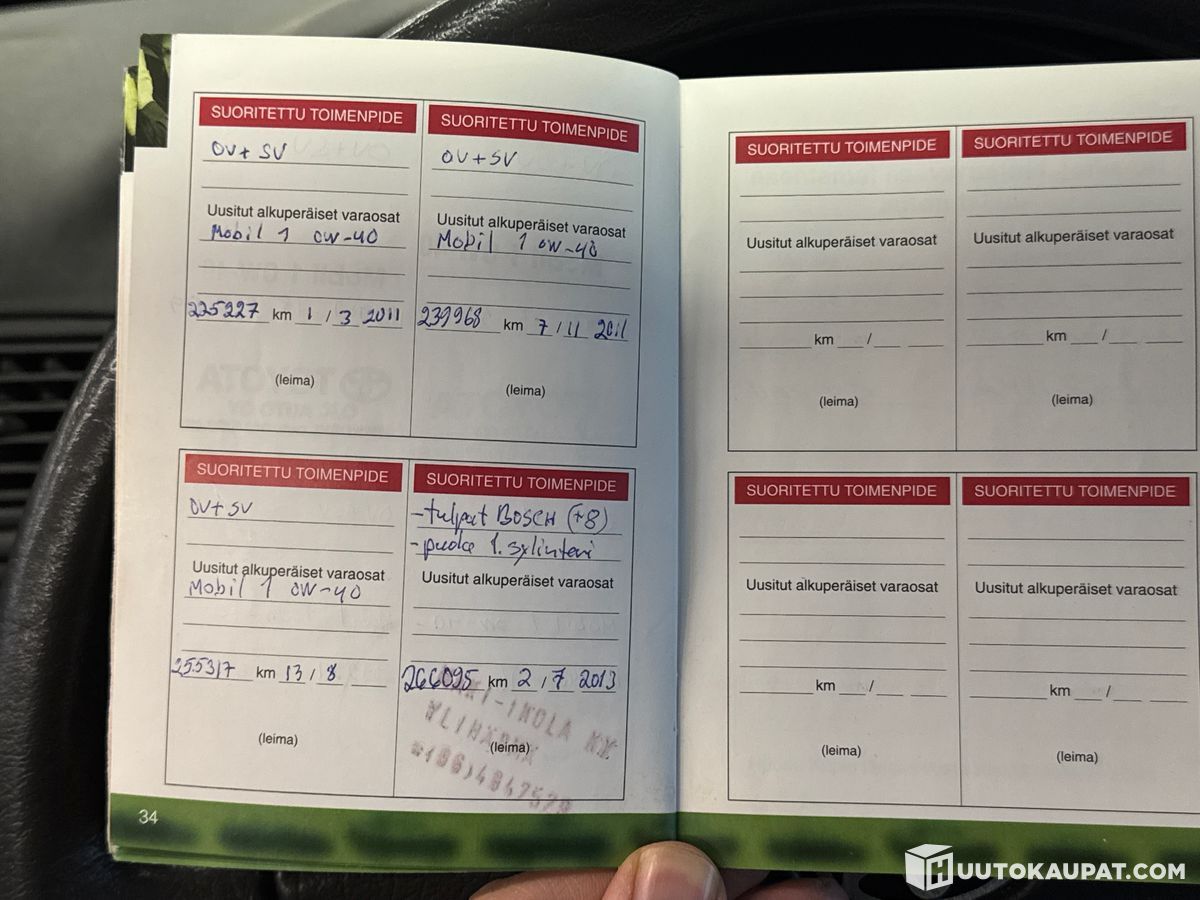 SUORITETTU TOIMENPIDE
OV+ SV
Uusitut alkuperäiset varaosat
Mobil 1 0W-40
225227 km 1 / 3 2011
(leima)
SUORITETTU TOIMENPIDE
OV+SV
Uusitut alkuperäiset varaosat
Mobil 1 0W-40
239968 km 7 / 11 2011
(leima)
SUORITETTU TOIMENPIDE
OV+SV
Uusitut alkuperäiset varaosat
Mobil 1 0W-40
255317 km 13 / 8
(leima)
SUORITETTU TOIMENPIDE
-tulpat BOSCH (+8)
-puola 1. sylinteri
Uusitut alkuperäiset varaosat
266095 km 2 / 7 2013
(leima)
34
SUORITETTU TOIMENPIDE
Uusitut alkuperäiset varaosat
km / 
(leima)
SUORITETTU TOIMENPIDE
Uusitut alkuperäiset varaosat
km /
(leima)
SUORITETTU TOIMENPIDE
Uusitut alkuperäiset varaosat
km /
(leima)
SUORITETTU TOIMENPIDE
Uusitut alkuperäiset varaosat
km /
(leima)
HUUTOKAUPAT.COM